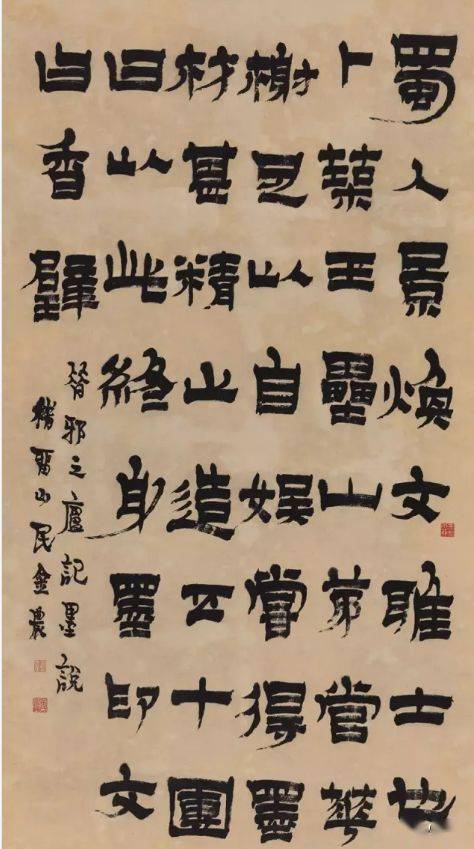 蜀人景煥文雅士也
卜築玉壘山茅堂華
榭足以自娛嘗得墨
材甚精止造五十團
曰以此終身墨印文
曰香璧
昔邪之廬記墨說
稽留山民金農